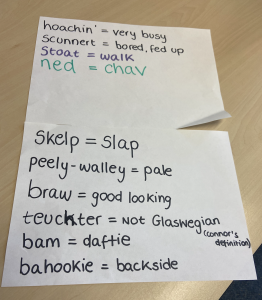 hoachin' = very busy
scunnert = bored, fed up
stoat = walk
ned = chav
skelp = slap
peely-walley = pale
braw = good looking
teuchter = NOT Glaswegian
(connor's
definition)
bam = daftie
bahookie = backside